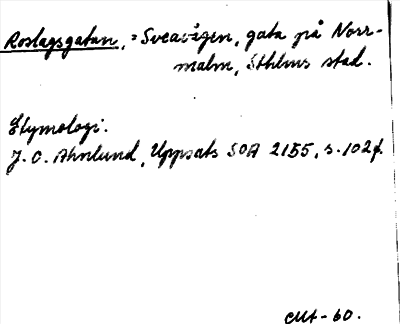 Roslagsgatan, = Sveavägen, gata på Norr-
malm, Sthlms stad.
Etymologi.
J. O. Ahnlund, Uppsats SOA 2155, s. 102f.
-60.